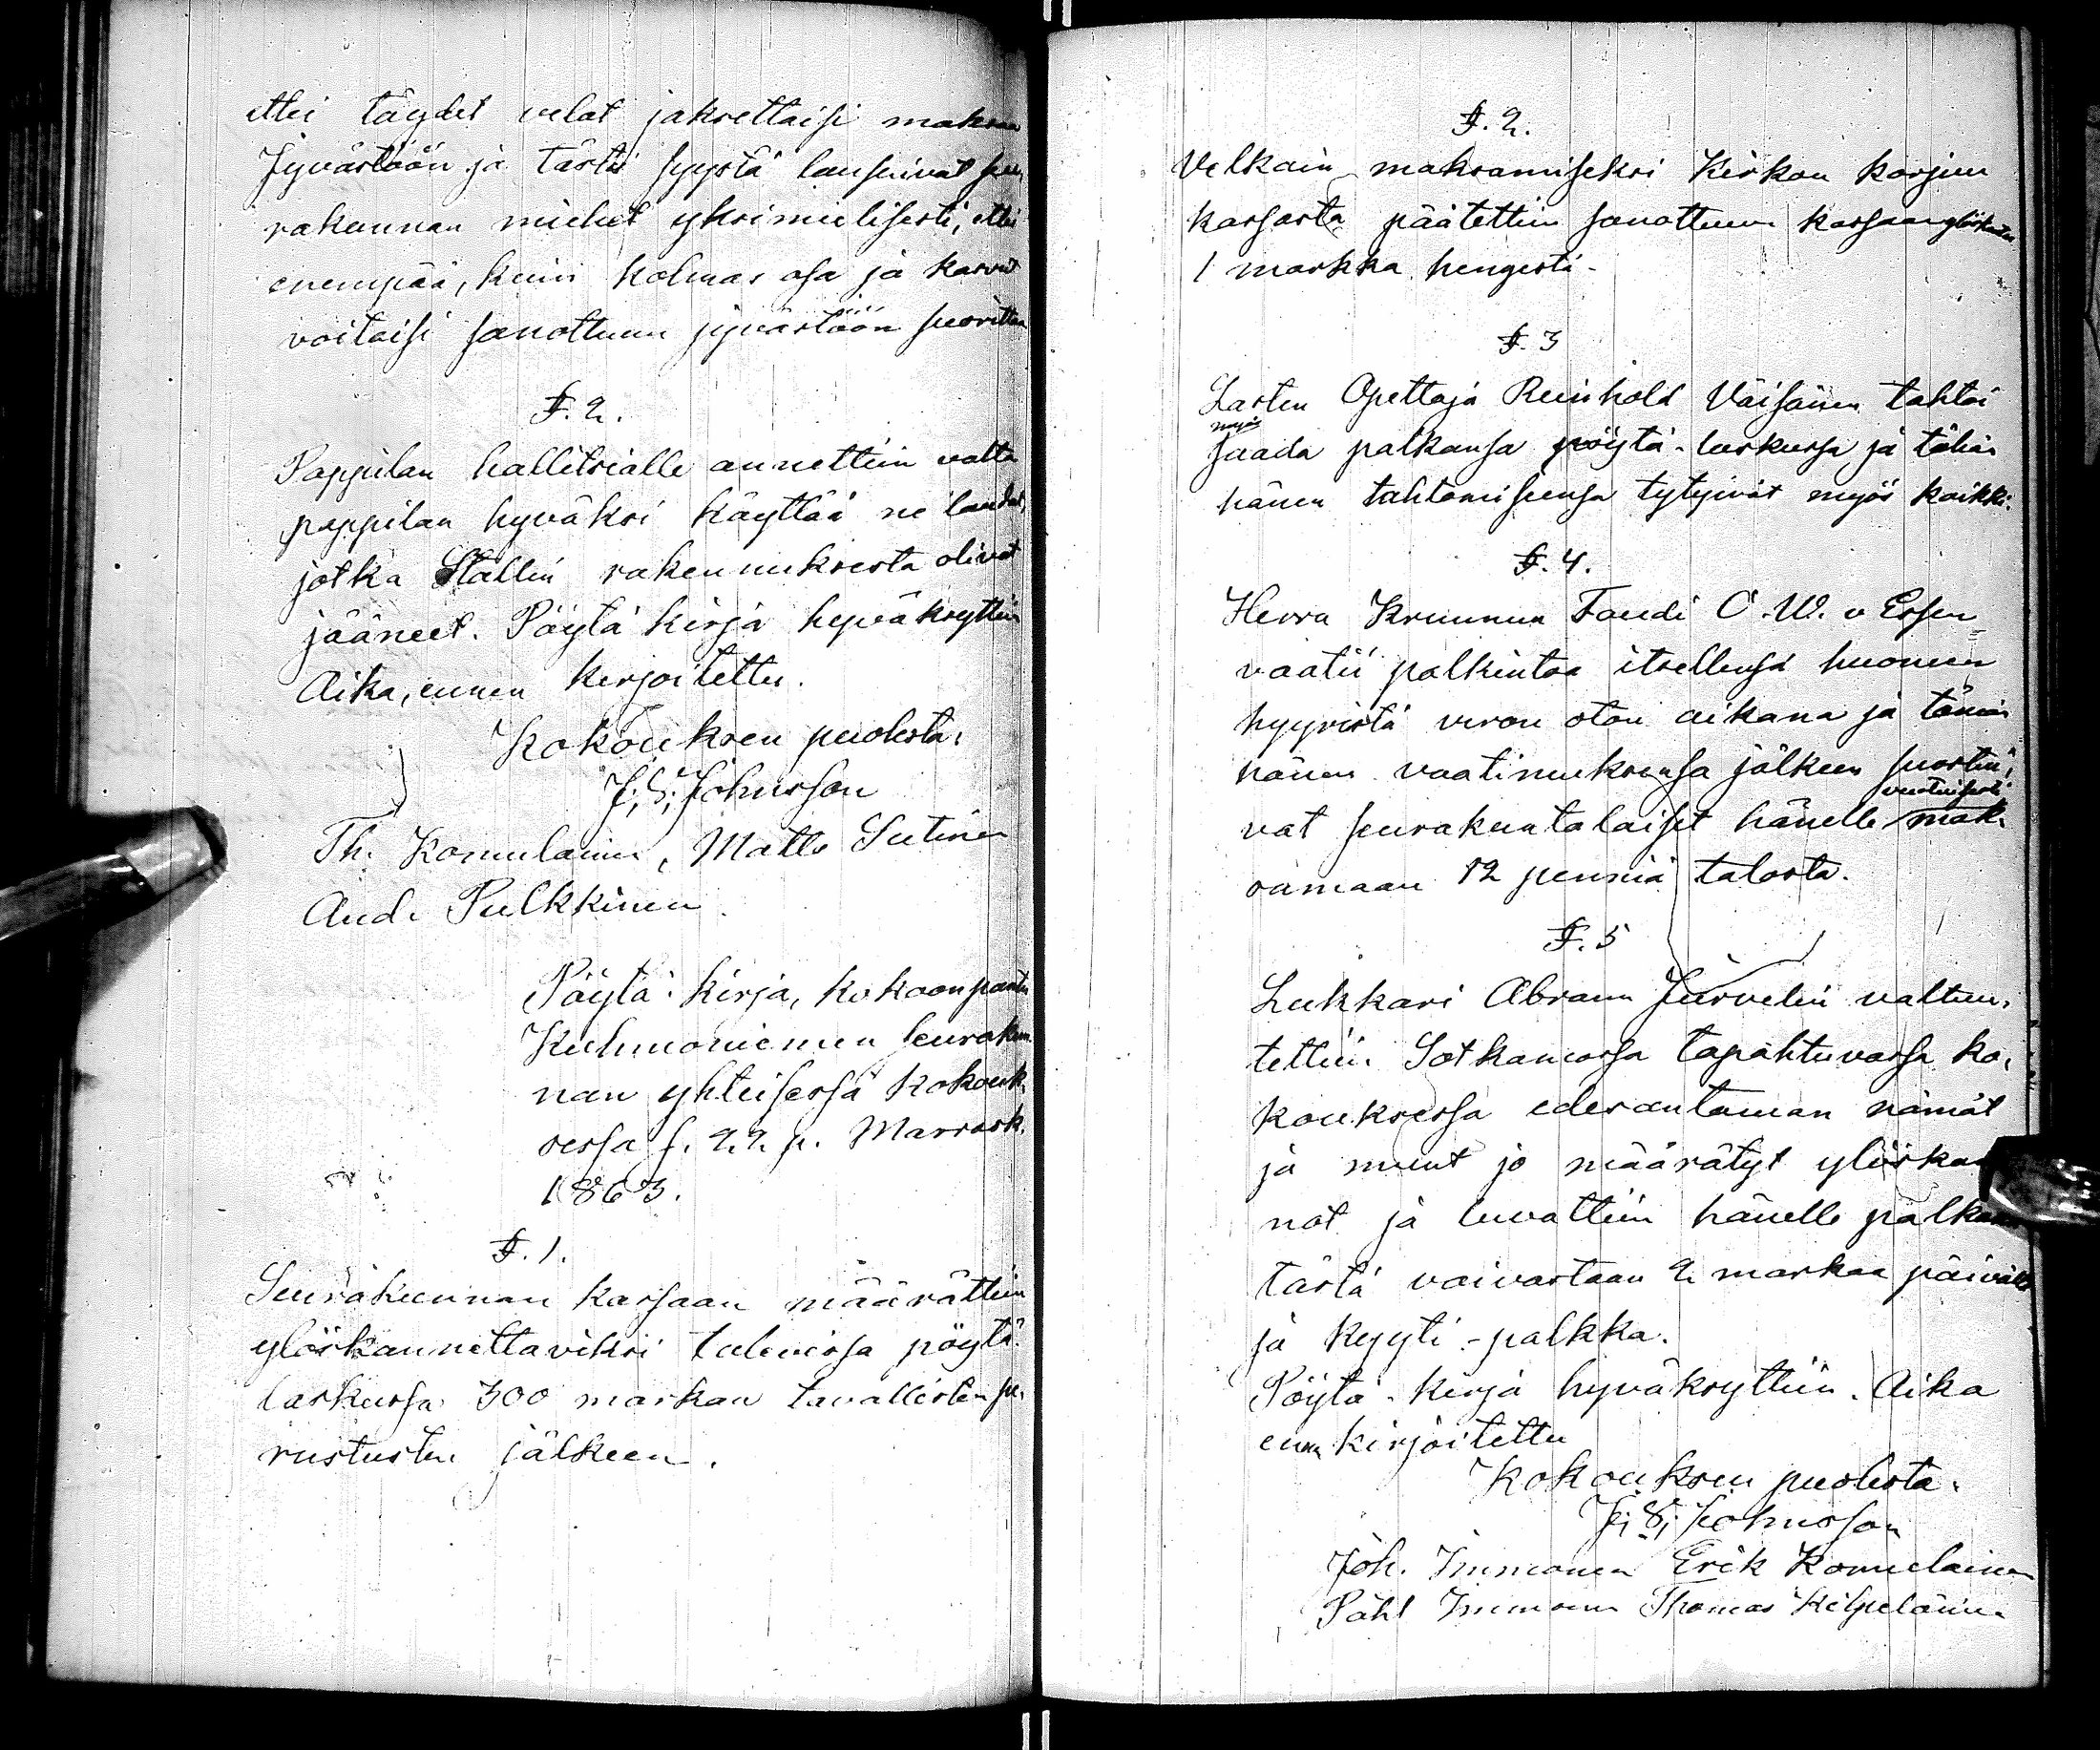 ettei täydet velat jaksettaisi maksaa
Jyvästöön ja tästä syystä lausuivat seu,
rakunnan miehet yksimielisesti, ettei
enempää, kuin kolmas osa ja kasvut
voitaisi sanottuun jyvästöön suorittaa
§. 2.
Pappilan hallitsialle annettiin valta
pappilan hyväksi käyttää ne laudat,
jotka Stallin rakennuksesta olivat
jääneet. Pöytä kirja hyväksyttiin
Aika, ennen kirjoitettu.
Kokouksen puolesta:
J; S; Johnsson
Th. Komulainen, Matts Sutinen
And. Pulkkinen
Pöytä-kirja, kokoonpantu
Kuhmoniemen seurakun-
nan yhteisessä kokouk-
sessa s. 22 p. Marrask.
1863.
§. 1.
Seurakunnan kassaan määrättiin
ylöskannettaviksi tulevissa pöytä-
laskussa 300 markan tavallisten pe-
rustusten jälkeen.
§. 2.
Velkain maksamiseksi Kirkon korjuu
kassasta päätettiin sanottuun kassaan
1 markka hengestä.
§. 3
Lasten Opettaja Reinhold Väisänen tahtoi
myös
saada palkansa pöytä-laskussa ja tähän
hänen tahtomiseensa tytyivät myös kaikki.
§. 4.
Herra Kruunun Foudi O. W. v Essen
vaatii palkintoa itsellensä huoneen
hyyristä veron oton aikana ja tämän
hänen vaatimuksensa jälkeen suostui,
vat seurakuntalaiset hänelle mak-
samaan 12 penniä talosta.
§. 5
Lukkari Abram Jurvelin valtuu,
tettiin Sotkamossa tapahtuvassa ko,
kouksessa edesantaman nämät
ja muut jo määrätyt ylöskan
not ja luvattiin hänelle palkan
tästä vaivastaan 2 markaa päivältä
ja kyyti-palkka.
Pöytä-kirja hyväksyttiin. Aika
enn. kirjoitettu
Kokouksen puolesta.
J; S; Johnsson
Joh. Immonen Erik Komulainen
Påhl Immonen Thomas Kilpeläinen